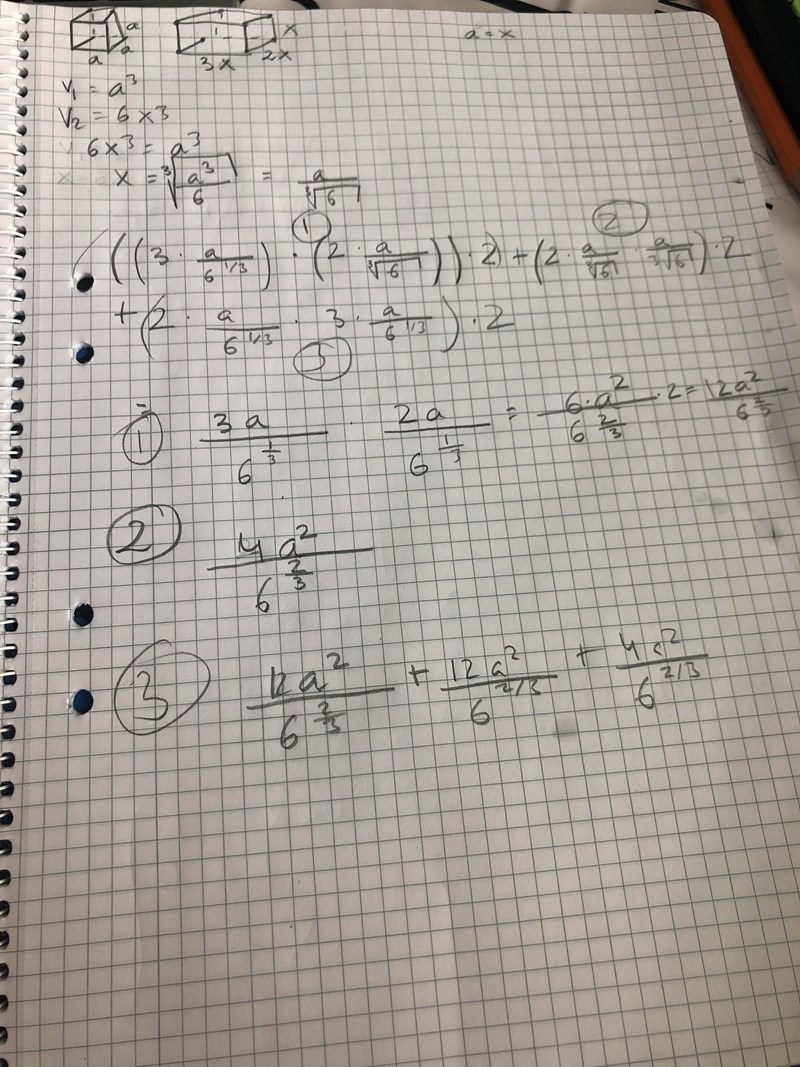 a a a 3x 2x x a = x
V₁ = a³
V₂ = 6x3
6x³ = a³
x = ∛(a³/6) = a/∛6
① ②
((3 · a/6^1/3) · (2 · a/∛6)) · 2) + (2 · a/∛6 · a/∛6) · 2
+ (2 · a/6^1/3 · 3 · a/6^1/3) · 2
③
① = 3a/6^(1/3) · 2a/6^(1/3) = 6·a²/6^(2/3) · 2 = 12a²/6^(2/3)
② 4a²/6^(2/3)
③ 12a²/6^(2/3) + 12a²/6^2/3 + 4a²/6^2/3